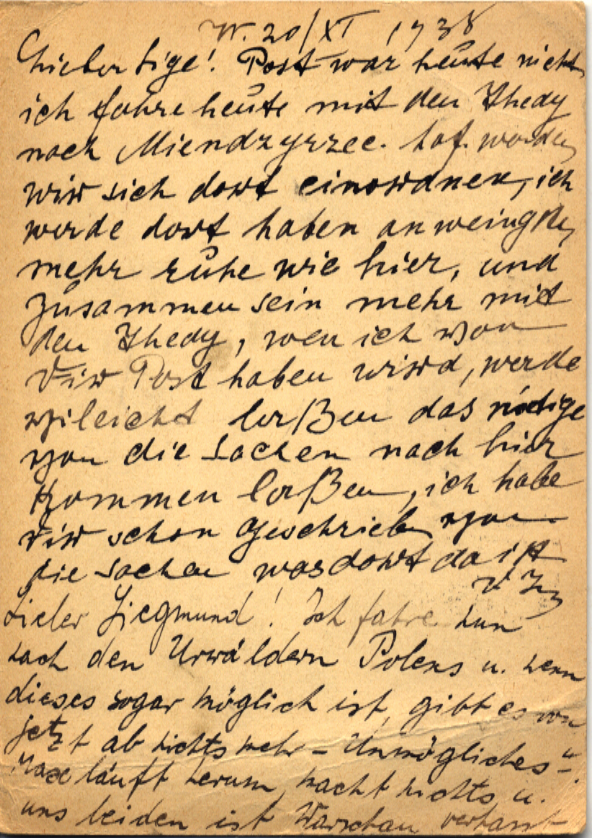 W. 20/XI 1938
Lieber Sige! Post war heute nicht
ich fahre heute mit den Thedy
nach Miendzyrzec. hof. werden
wir sich dort einordnen, ich
werde dort haben an weingste,
mehr ruhe wie hier, und
zusammen sein mehr mit
den Thedy, wen ich von
Dir Post haben wird, werde
vileicht loßen das nötige
von die Sachen nach hier
kommen loßen, ich habe
dir schon geschrieben von
die Sachen was dort da ist
Lieber Siegmund! Ich fahre nun
nach den Urwäldern Polens u. wenn
dieses sogar möglich ist, gibt es von
jetzt ab nichts mehr – Unmögliches –.
läuft herum, macht nichts u.
uns beiden ist Warschau verhasst